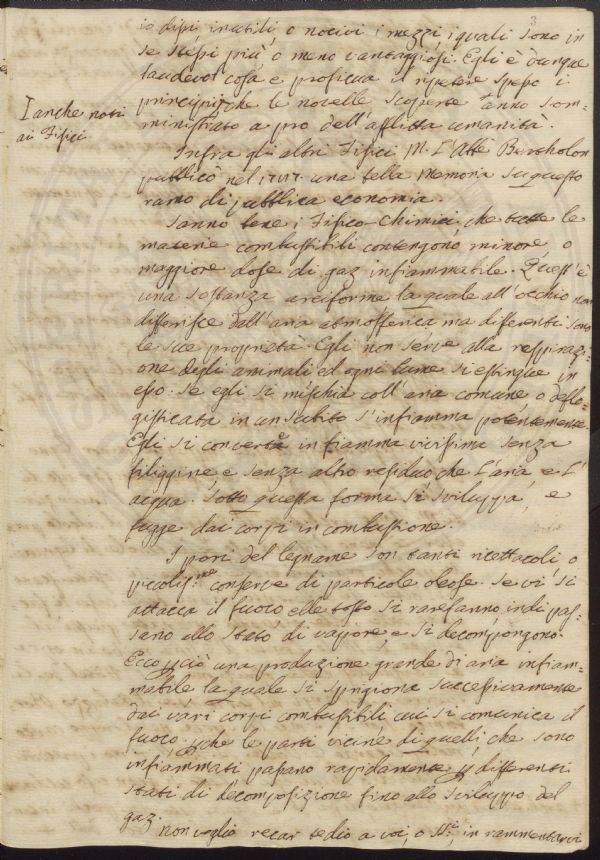 io dissi inutili, o nocivi i mezzi, i quali sono in
se stessi più o meno vantaggiosi. Egli è dunque
laudevol cosa e proficua il ripetere spesso i
principj, che le novelle scoperte anno som=
ministrato a pro dell'afflitta umanità.
I anche noti
ai Fisici
Infra gli altri Fisici M. L'Abbe Bertholon
pubblicò nel una bella memoria su questo
ramo di pubblica economia.
Sanno bene i Fisico-Chimici che tutte le
materie combustibili contengono minore, o
maggiore dose di gaz infiammabile. Quest'è
una sostanza aeriforme la quale all'occhio non
differisce dall'aria atmosferica ma differenti sono
le sue proprietà. Egli non serve alla respirazi=
one degli animali ed ogni lume si estingue in
esso. Se egli si mischia coll'aria comune, o deflo=
gisticata in un subito s'infiamma potentemente
Egli si converte in fiamma vivissima senza
filiggine, e senza altro residuo che l'aria, e l'
acqua. Sotto questa forma si sviluppa, e
fugge dai corpi in combustione.
I pori del legname son tanti ricettacoli, o
picoliss.me conserve di particole oleose. Se vi si
attacca il fuoco elle tosto si rarefanno, indi pas=
sano allo stato di vapore, e si decompongono.
Ecco pciò una produzione grande di aria infiam=
mabile la quale si sprigiona successivamente
dai varj corpi combustibili cui si comunica il
fuoco: pche le parti vicine di quelli, che sono
infiammati passano rapidamente p differenti
stati di decomposizione fino allo sviluppo del
gaz.
Non voglio recar tedio a voi, o SS.ri, in rammentarvi